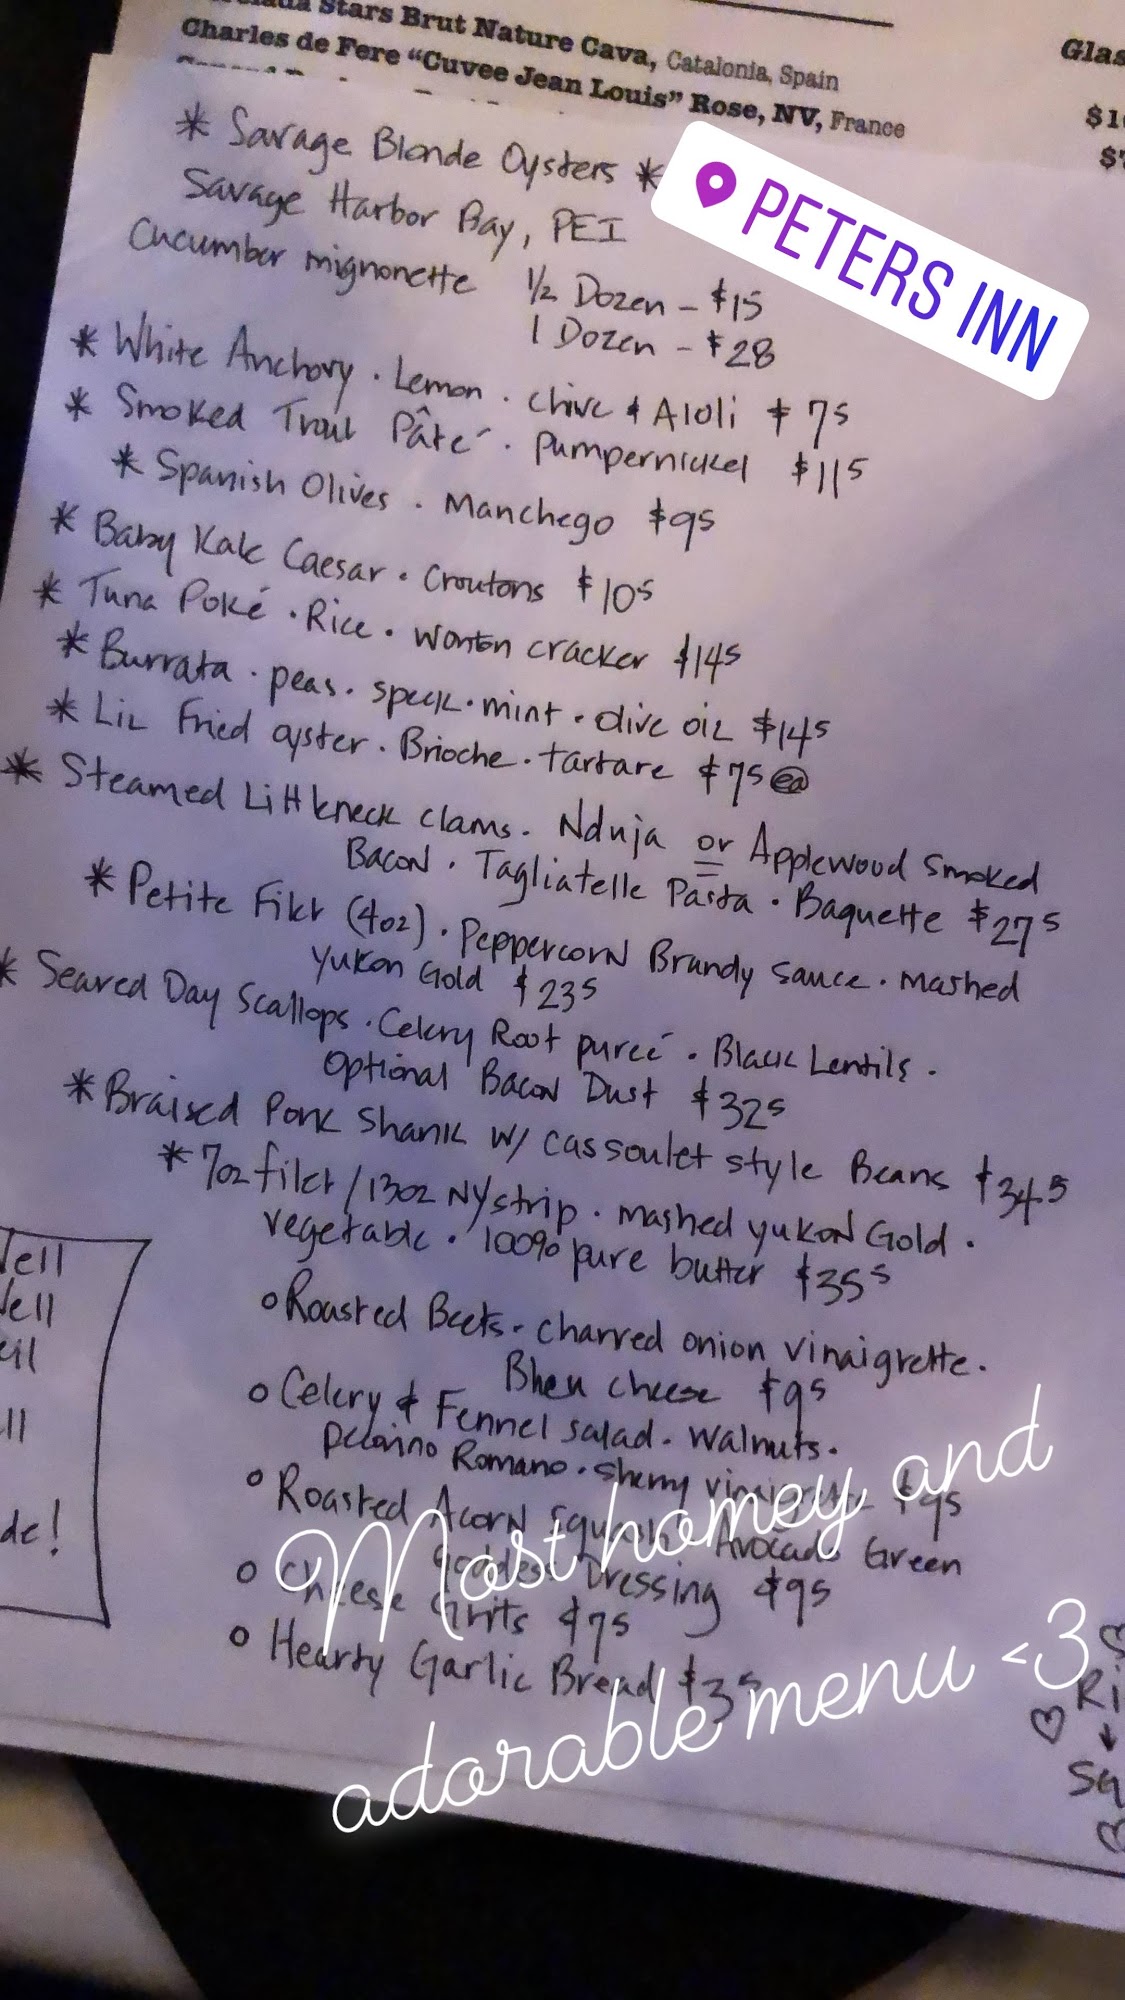 Stars Brut Nature Cava, Catalonia, Spain
Charles de Fere “Cuvee Jean Louis” Rose, NV, France
PETERS INN
* Savage Blonde Oysters *
Savage Harbor Bay, PEI
Cucumber mignonette 1/2 Dozen - $15
1 Dozen - $28
* White Anchovy · Lemon · chive & AIOLI $7⁵
* Smoked Trout Pâté · Pumpernickel $11⁵
* Spanish Olives · Manchego $9⁵
* Baby Kale Caesar · Croutons $10⁵
* Tuna Poké · Rice · wonton cracker $14⁵
* Burrata · peas · speck · mint · olive oil $14⁵
* Lil Fried oyster · Brioche · tartare $7⁵ ea
* Steamed Littleneck clams · Nduja or Applewood smoked
Bacon · Tagliatelle Pasta · Baguette $27⁵
* Petite Filet (4oz) · Peppercorn Brandy sauce · mashed
Yukon Gold $23⁵
* Seared Day Scallops · Celery Root pureé · Black Lentils ·
Optional Bacon Dust $32⁵
* Braised Pork Shank w/ cassoulet style Beans $34⁵
* 7oz filet / 13oz NY strip · mashed yukon Gold ·
vegetable · 100% pure butter $35⁵
o Roasted Beets · charred onion vinaigrette ·
Bheu cheese $9⁵
o Celery & Fennel salad · walnuts ·
Pecorino Romano · sherry vinaigrette $9⁵
o Roasted Acorn Squash · Avocado Green
Goddess Dressing $9⁵
o Cheese Grits $7⁵
o Hearty Garlic Bread $3⁵
Most homey and
adorable menu <3